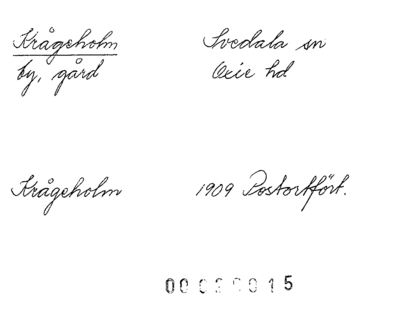 Krågeholm Svedala sn
by, gård Oxie hd
Krågeholm 1909 Postortfört.